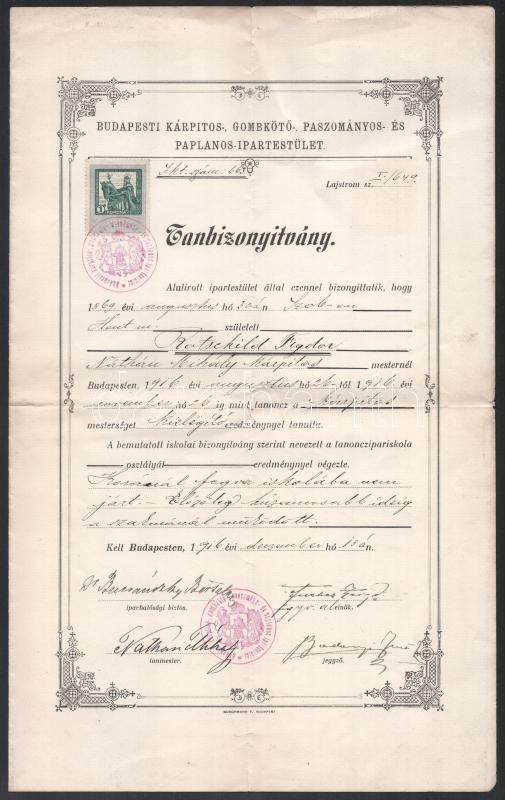 BUDAPESTI KÁRPITOS-, GOMBKÖTŐ-, PASZOMÁNYOS- ÉS
PAPLANOS-IPARTESTÜLET.
Ikt. szám: 663
Lajstrom sz. I./649.
Tanbizonyitvány.
Alulirott ipartestület által ezennel bizonyittatik, hogy
1869 évi augusztus hó 30án Szob-on
Hont m. született
Rotschild Fygdor
Náthán Mihály kárpitos mesternél
Budapesten, 1916 évi augusztus hó 26-tól 1916 évi
november hó 26 ig mint tanoncz a kárpitos
mesterséget kielégítő eredménynyel tanulta.
A bemutatott iskolai bizonyítvány szerint nevezett a tanoncziparískola
osztályát eredménynyel végezte.
Koránál fogva iskolába nem
járt. – Előzőleg húzamosabb ideig
a szakmánál működött.
Kelt Budapesten, 1916. évi deczember hó 13án.
iparhatósági biztos.
alelnök.
Nathan Mihály
tanmester.
jegyző.